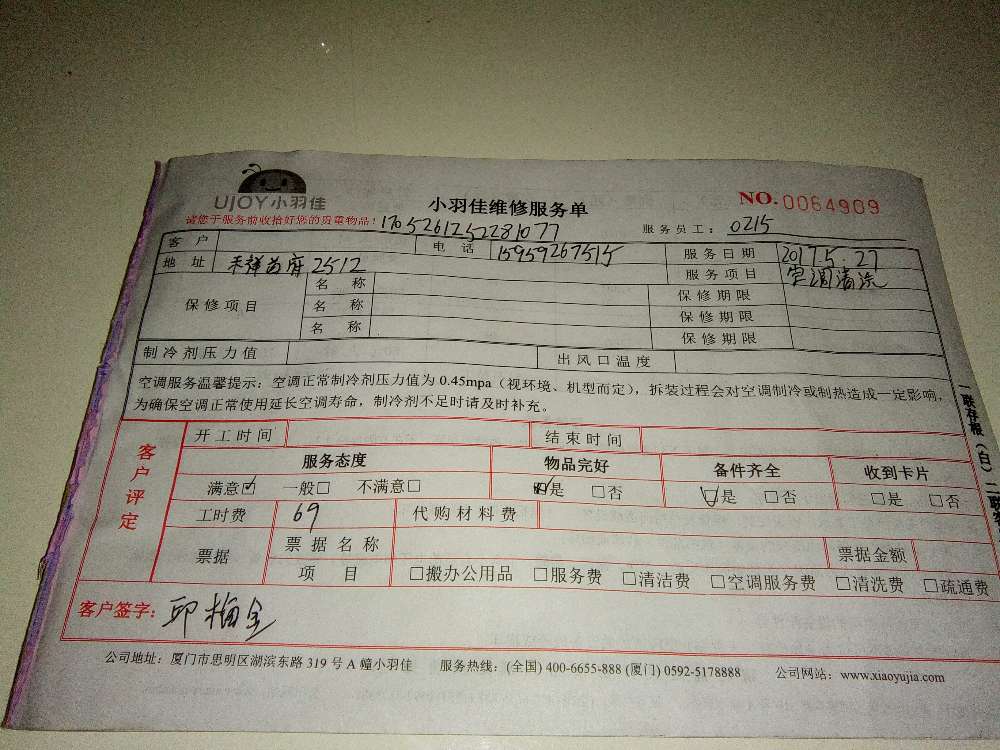 UJOY小羽佳
小羽佳维修服务单
NO.0064909
请您于服务前收拾好您的贵重物品！
1705261252281077
服务员工：0215
客户 电话 15959267515 服务日期 2017.5.27
地址 禾祥首府2512 服务项目 空调清洗
保修项目 名称 保修期限
名称 保修期限
名称 保修期限
制冷剂压力值 出风口温度
空调服务温馨提示：空调正常制冷剂压力值为0.45mpa（视环境、机型而定），拆装过程会对空调制冷或制热造成一定影响，
为确保空调正常使用延长空调寿命，制冷剂不足时请及时补充。
一联存根（白）二联
客户评定
开工时间 结束时间
服务态度 物品完好 备件齐全 收到卡片
满意☑ 一般□ 不满意□ ☑是 □否 ☑是 □否 □是 □否
工时费 69 代购材料费
票据 票据名称 票据金额
项目 □搬办公用品 □服务费 □清洁费 □空调服务费 □清洗费 □疏通费
客户签字：邱梅全
公司地址：厦门市思明区湖滨东路 319 号 A 幢小羽佳 服务热线：(全国) 400-6655-888 (厦门) 0592-5178888 公司网站：www.xiaoyujia.com